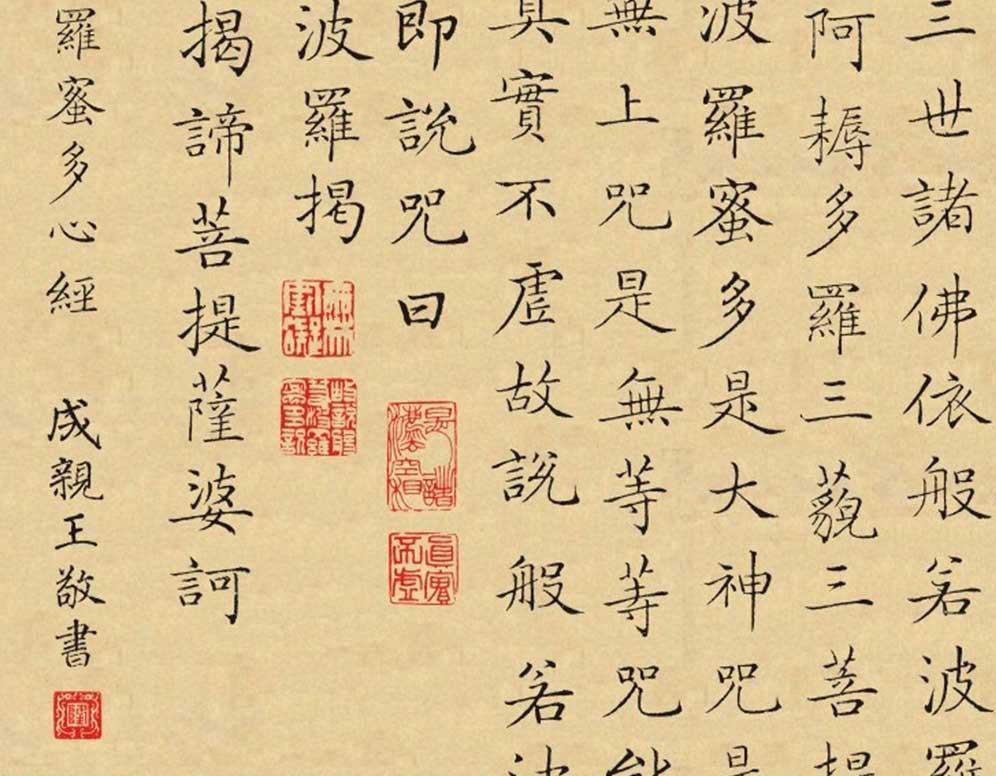 三世諸佛依般若波羅
阿耨多羅三藐三菩提
波羅蜜多是大神咒是
無上咒是無等等咒能
真實不虛故説般若波
即説咒曰
波羅揭
揭諦菩提薩婆訶
羅蜜多心經 成親王敬書